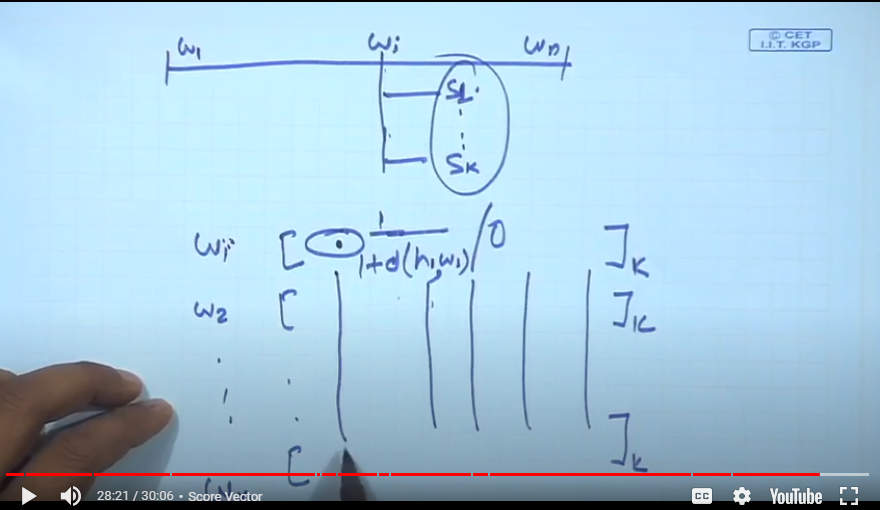 © CET
I.I.T. KGP
w1 wi wn
S1
SK
wi [ 1 / 1+d(h,w1) / 0 ]K
w2 [ ]K
[ ]K
28:21 / 30:06 • Score Vector CC YouTube